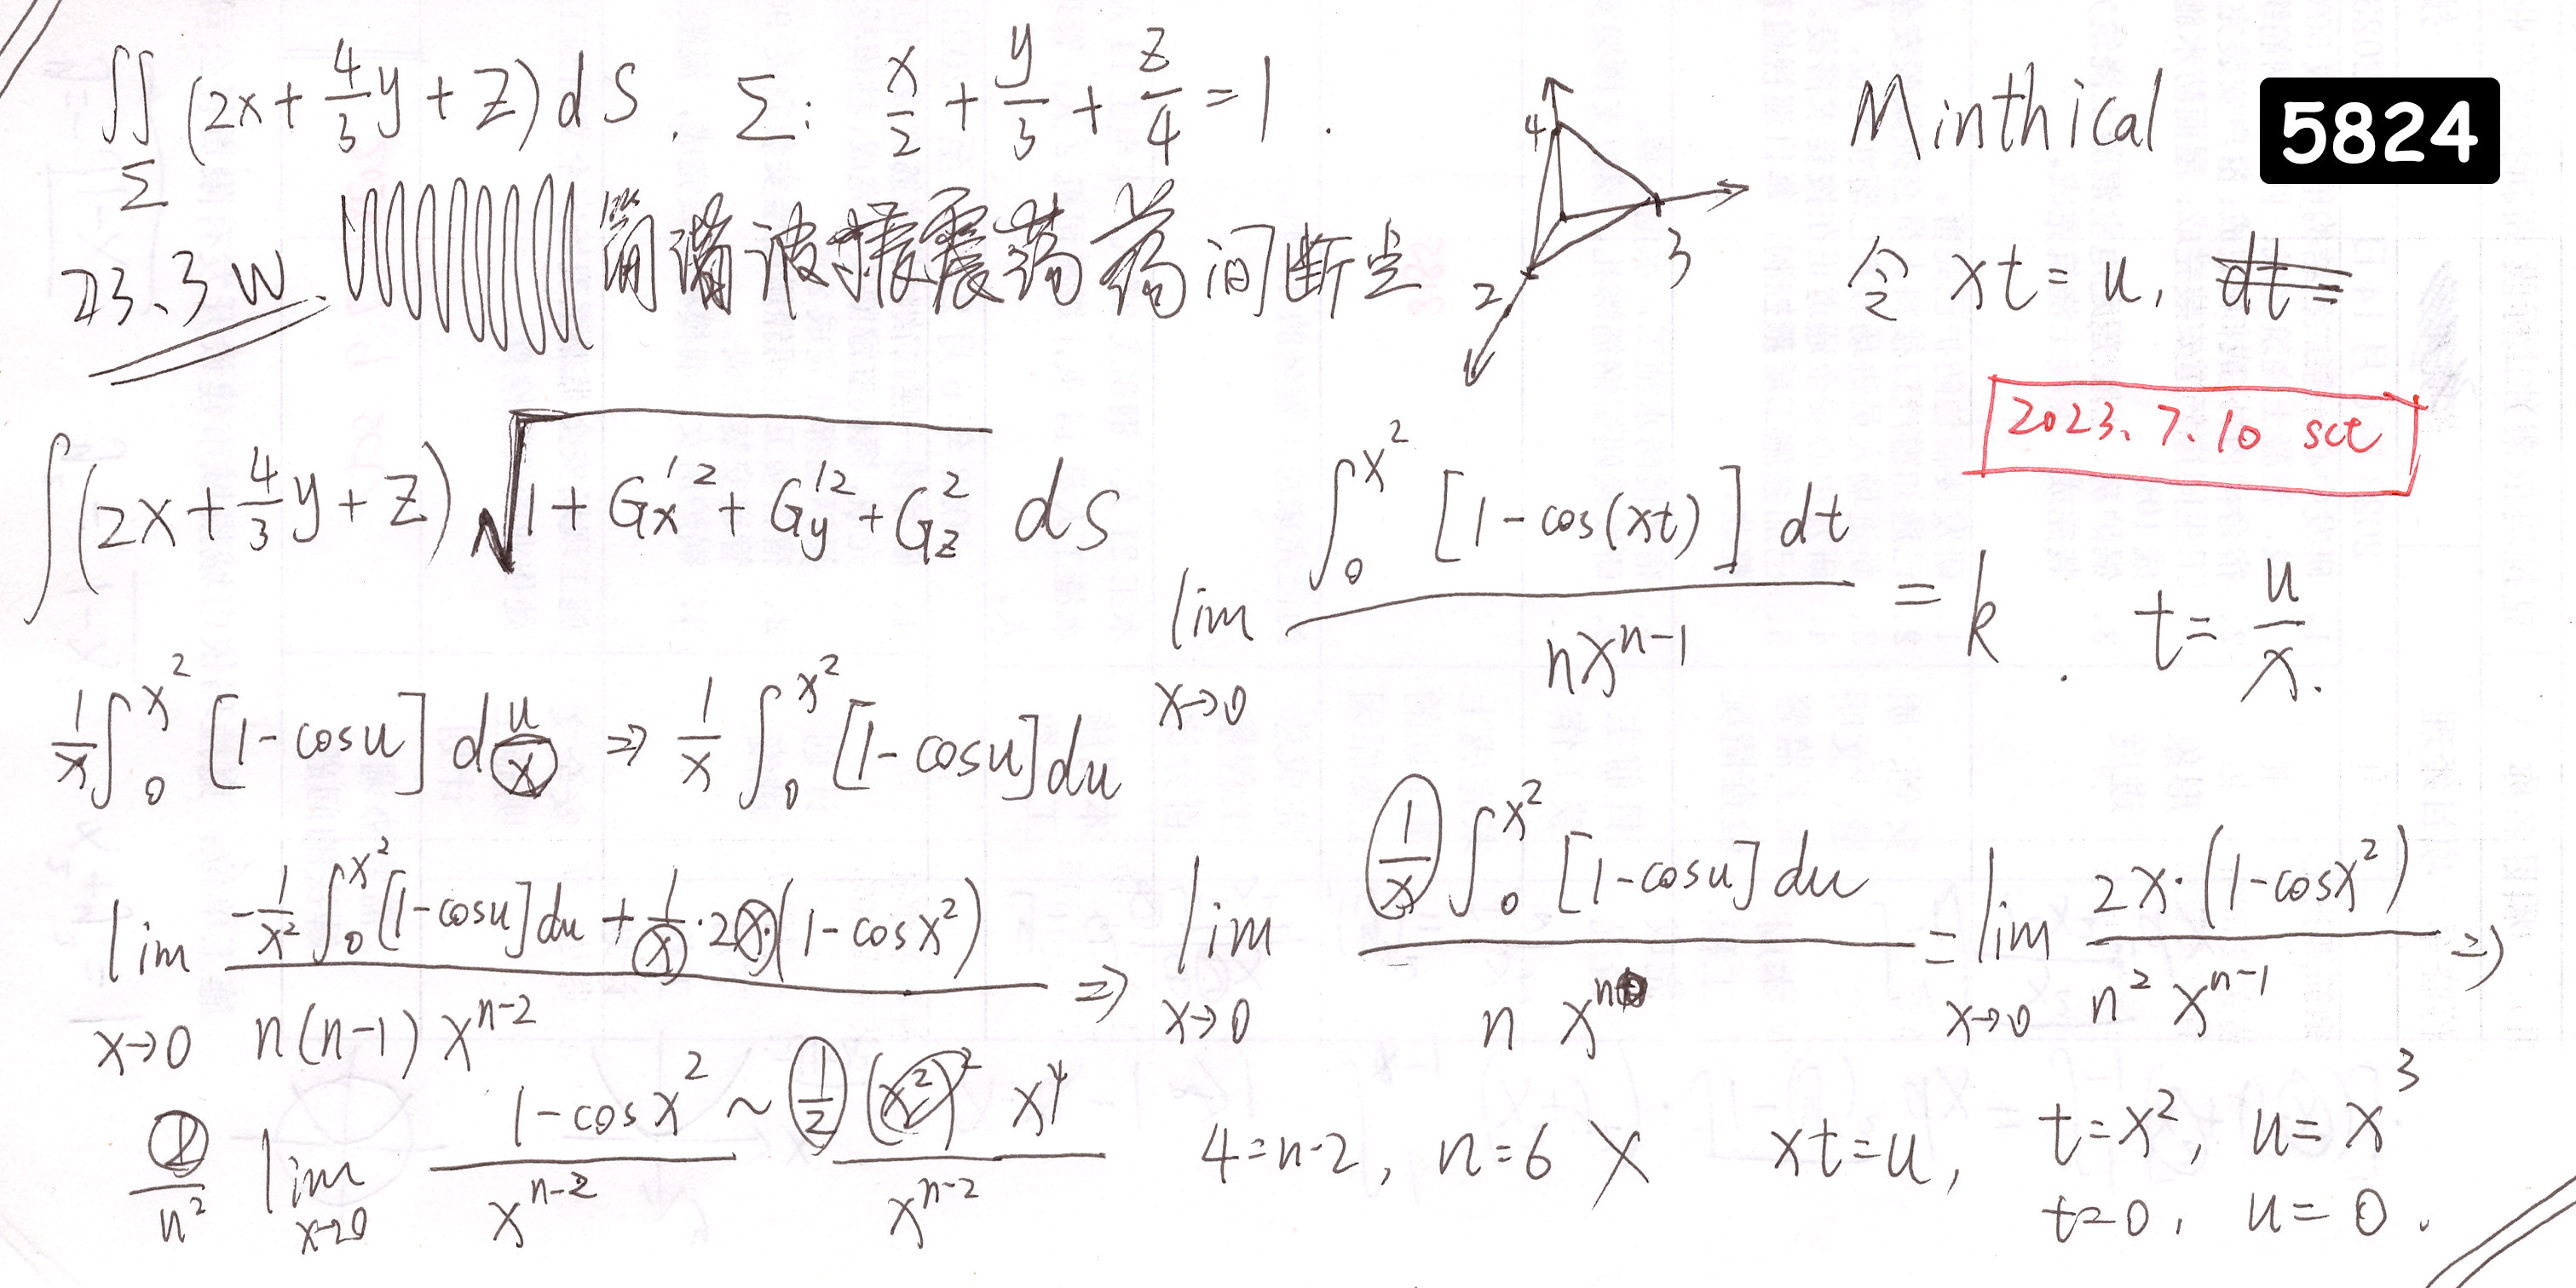 ∬_Σ (2x + 4/3 y + z) dS. Σ: x/2 + y/3 + z/4 = 1.
4
3
2
Minthical
5824
23.3W. 简谐波振震荡药间断点
令 xt = u, dt =
2023.7.10 sct
∫(2x + 4/3 y + z) √(1 + G'x² + G'y² + Gz²) dS
lim_{x→0} ∫_0^{x²} [1 - cos(xt)] dt / nx^{n-1} = k. t = u/x.
1/x ∫_0^{x²} [1 - cosu] d u/x ⇒ 1/x ∫_0^{x²} [1 - cosu] du
lim_{x→0} (-1/x² ∫_0^{x²} [1 - cosu] du + 1/x · 2x · (1 - cosx²)) / n(n-1) x^{n-2} ⇒ lim_{x→0} 1/x ∫_0^{x²} [1 - cosu] du / n x^n = lim_{x→0} 2x · (1 - cosx²) / n² x^{n-1} ⇒
2/n² lim_{x→0} 1 - cosx² / x^{n-2} ~ 1/2 (x²)² x⁴ / x^{n-2}
4 = n-2, n = 6 ×
xt = u, t = x², u = x³
t = 0, u = 0.